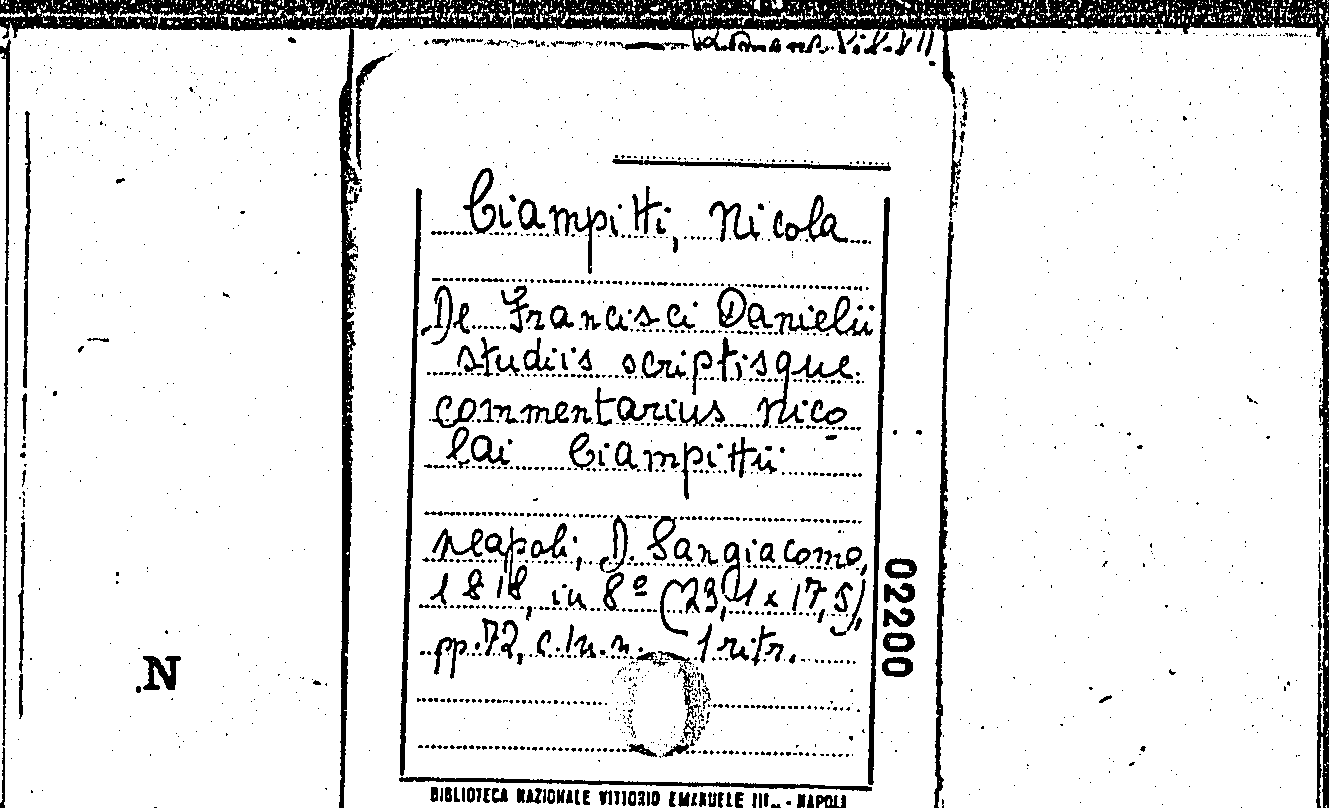 Ciampitti, Nicola
De Francisci Danielii
studiis scriptisque
commentarius Nico
lai Ciampittii
Neapoli, D. Sangiacomo,
1818, in 8º (23,1 x 17,5),
pp. 72, c. 1 n. n. 1 ritr.
02200
N
BIBLIOTECA NAZIONALE VITTORIO EMANUELE III. - NAPOLI